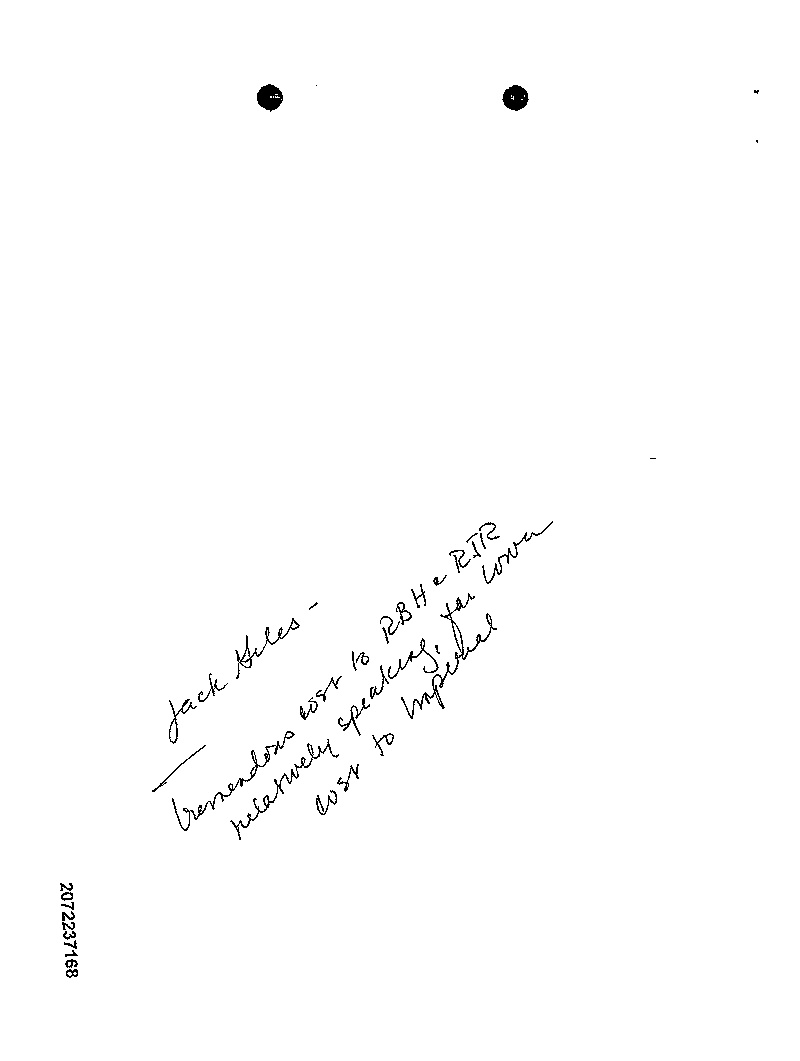 Jack Hiles -
tremendous cost to RBH & RJR
relatively speaking, far lower
cost to Imperial
2072237168